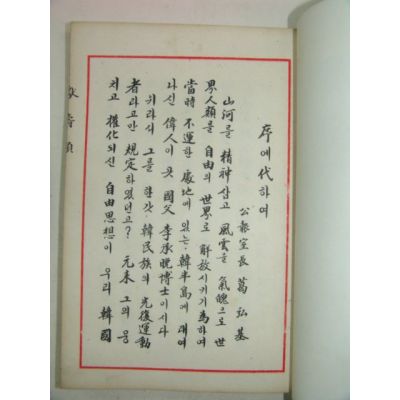 序에 代하여
公報室長 葛弘基
山河를 精神삼고 風雲을 氣魄으로 世
界人類를 自由의 世界로 解放시키기 爲하여
當時 不運한 處地에 있는 韓半島에 태여
나신 偉人이 곳 國父 李承晩博士이시다
뉘라서 그를 한갓 韓民族의 光復運動
者라고만 規定하였던고? 元來 그의 몽
치고 權化되신 自由思想이 우리 韓國
頌